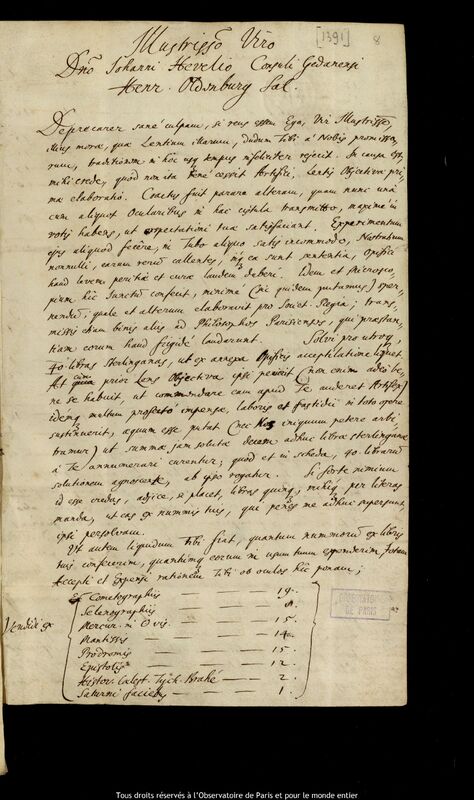 [1391] 8
Illustrissõ Viro
Dnõ Johanni Hevelio Consuli Gedanensi
Henr. Oldenburg Sal.
Deprecarer sanè culpam, si reus essem Ego, Vir Illustrissẽ,
illius moræ, quæ Lentium illarum, dudum Tibi à Nobis promissa-
rum, traditionem in hoc usq tempus rejecit. In causa est,
mihi crede, quod non ita benè cesserit Artifici, Lentis Objectivæ pri-
ma elaboratio. Coactus fuit parare alteram, quam nunc unà
cum aliquot Ocularibus in hac cistula transmitto, maximè in
votis habens, ut expectationi tuæ satisfaciant. Experimentum
ejus aliquod fecêre, in Tubo aliquo satis incommodo, Nostratium
nonnulli, earum rerum callentes, inq ea sunt sententia, Opifici
haud levem peritiæ et curæ laudem deberi. Idem et Microsco-
pium hîc junctum confecit, minimè (uti quidem putamus) sper-
nendum; quale et alterum elaboravit pro Societ. Regia; trans-
missis etiam binis aliis ad Philosophos Parisienses, qui præstan-
tiam eorum haud frigidè laudarunt. Solvi pro utroq,
40 libras Sterlingas, ut ex annexa Opificis acceptilatione liquet.
At quia prior Lens Objectiva ipsi periit (non enim adeò be-
ne se habuit, ut commendare eam apud Te auderet Artifex)
idemq multum profectò impensæ, laboris et fastidii in toto opere
sustinuerit, æquum esse putat (nec Nos iniquum petere arbi-
tramur) ut summæ jam solutæ decem adhuc libræ sterlingæ
à Te annumerari curentur; quod et in scheda, 40. librarum
solutionem agnoscente, ab ipso rogatur. Si fortè nimium
id esse credas, adjice, si placet, libras quinq, mihiq per literas
manda, ut eas ex nummis tuis, qui penes me adhuc supersunt,
ipsi persolvam.
Ut autem liquidum Tibi fiat, quantum nummorum ex libris
tuis confecerim, quantumq eorum in usum tuum expenderim, totam
Accepti et Expensi rationem Tibi ob oculos hîc ponam;
Vendidi ex
Cometographiis — — — 19.
Selenographiis — — — 8.
Mercur. in ☉ vis. — — — 15.
Mantissis — — — 14.
Prodromis — — — 15.
Epistolis — — — 12.
Histor. Cœlest. Tych. Brahé — — 2.
Saturni faciebus — — — 1.
OBSERVATOIRE
DE PARIS
Tous droits réservés à l'Observatoire de Paris et pour le monde entier